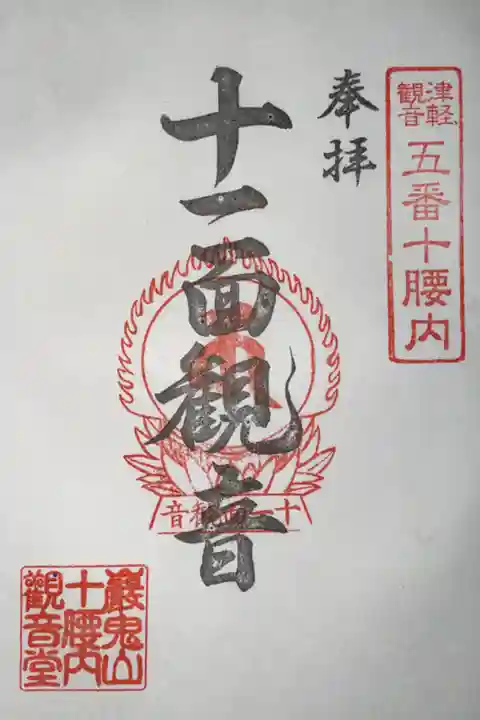 津軽
観音
五番十腰内
奉拝
十一面観音
十一面観音
巖鬼山
十腰内
觀音堂